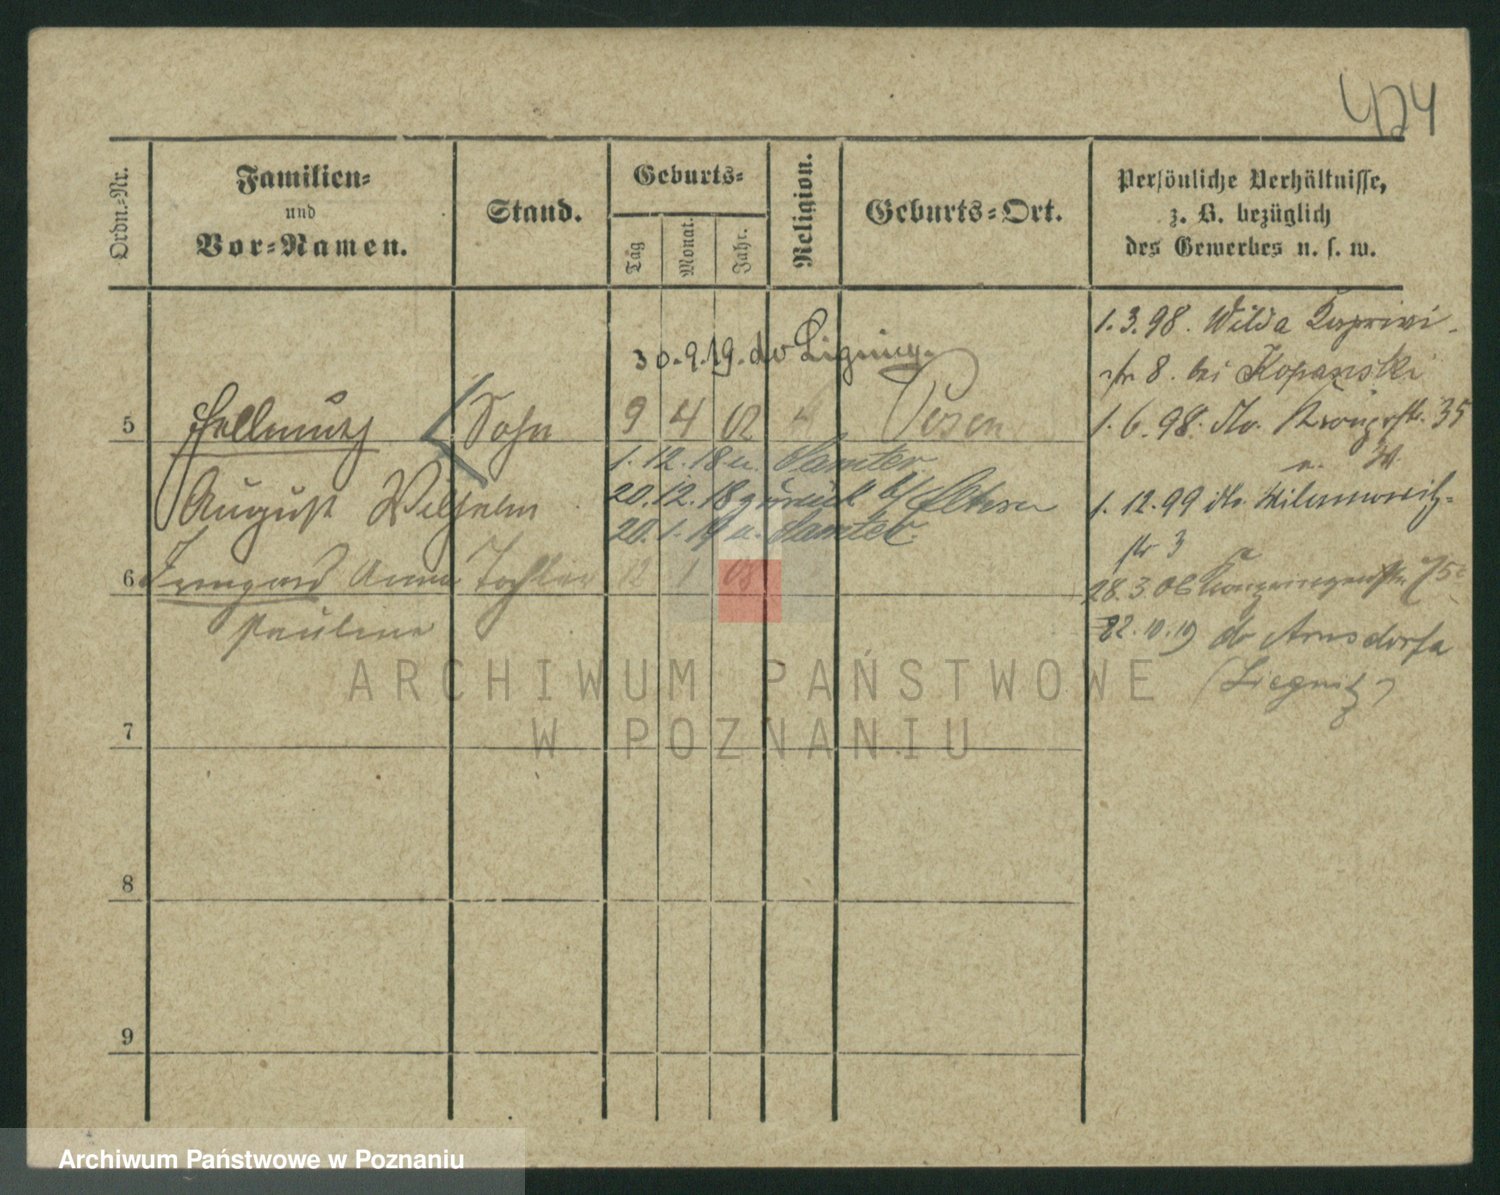 424
Ordn.-Nr.
Familien-
und
Vor-Namen.
Stand.
Geburts-
Tag
Monat.
Jahr.
Religion.
Geburts-Ort.
Persönliche Verhältnisse,
z. B. bezüglich
des Gewerbes u. s. w.
30.9.19. do
5
Hellmuth
Sohn
9 4 02 " Posen
1.12.18 u. Samter
August Wilhelm
20.12.18 zurück b/ Eltern
20.1.19 u. Samter.
6
Irmgard Anna
Tochter
12 1 08
Pauline
7
8
9
1.3.98. Wilda Caprivi-
str 8. bei Kopanski
1.6.98. do. 35
1.12.99 do.
str 3
28.3.06
22.10.19 do Arnsdorf
(Liegnitz)
ARCHIWUM PAŃSTWOWE
W POZNANIU
Archiwum Państwowe w Poznaniu